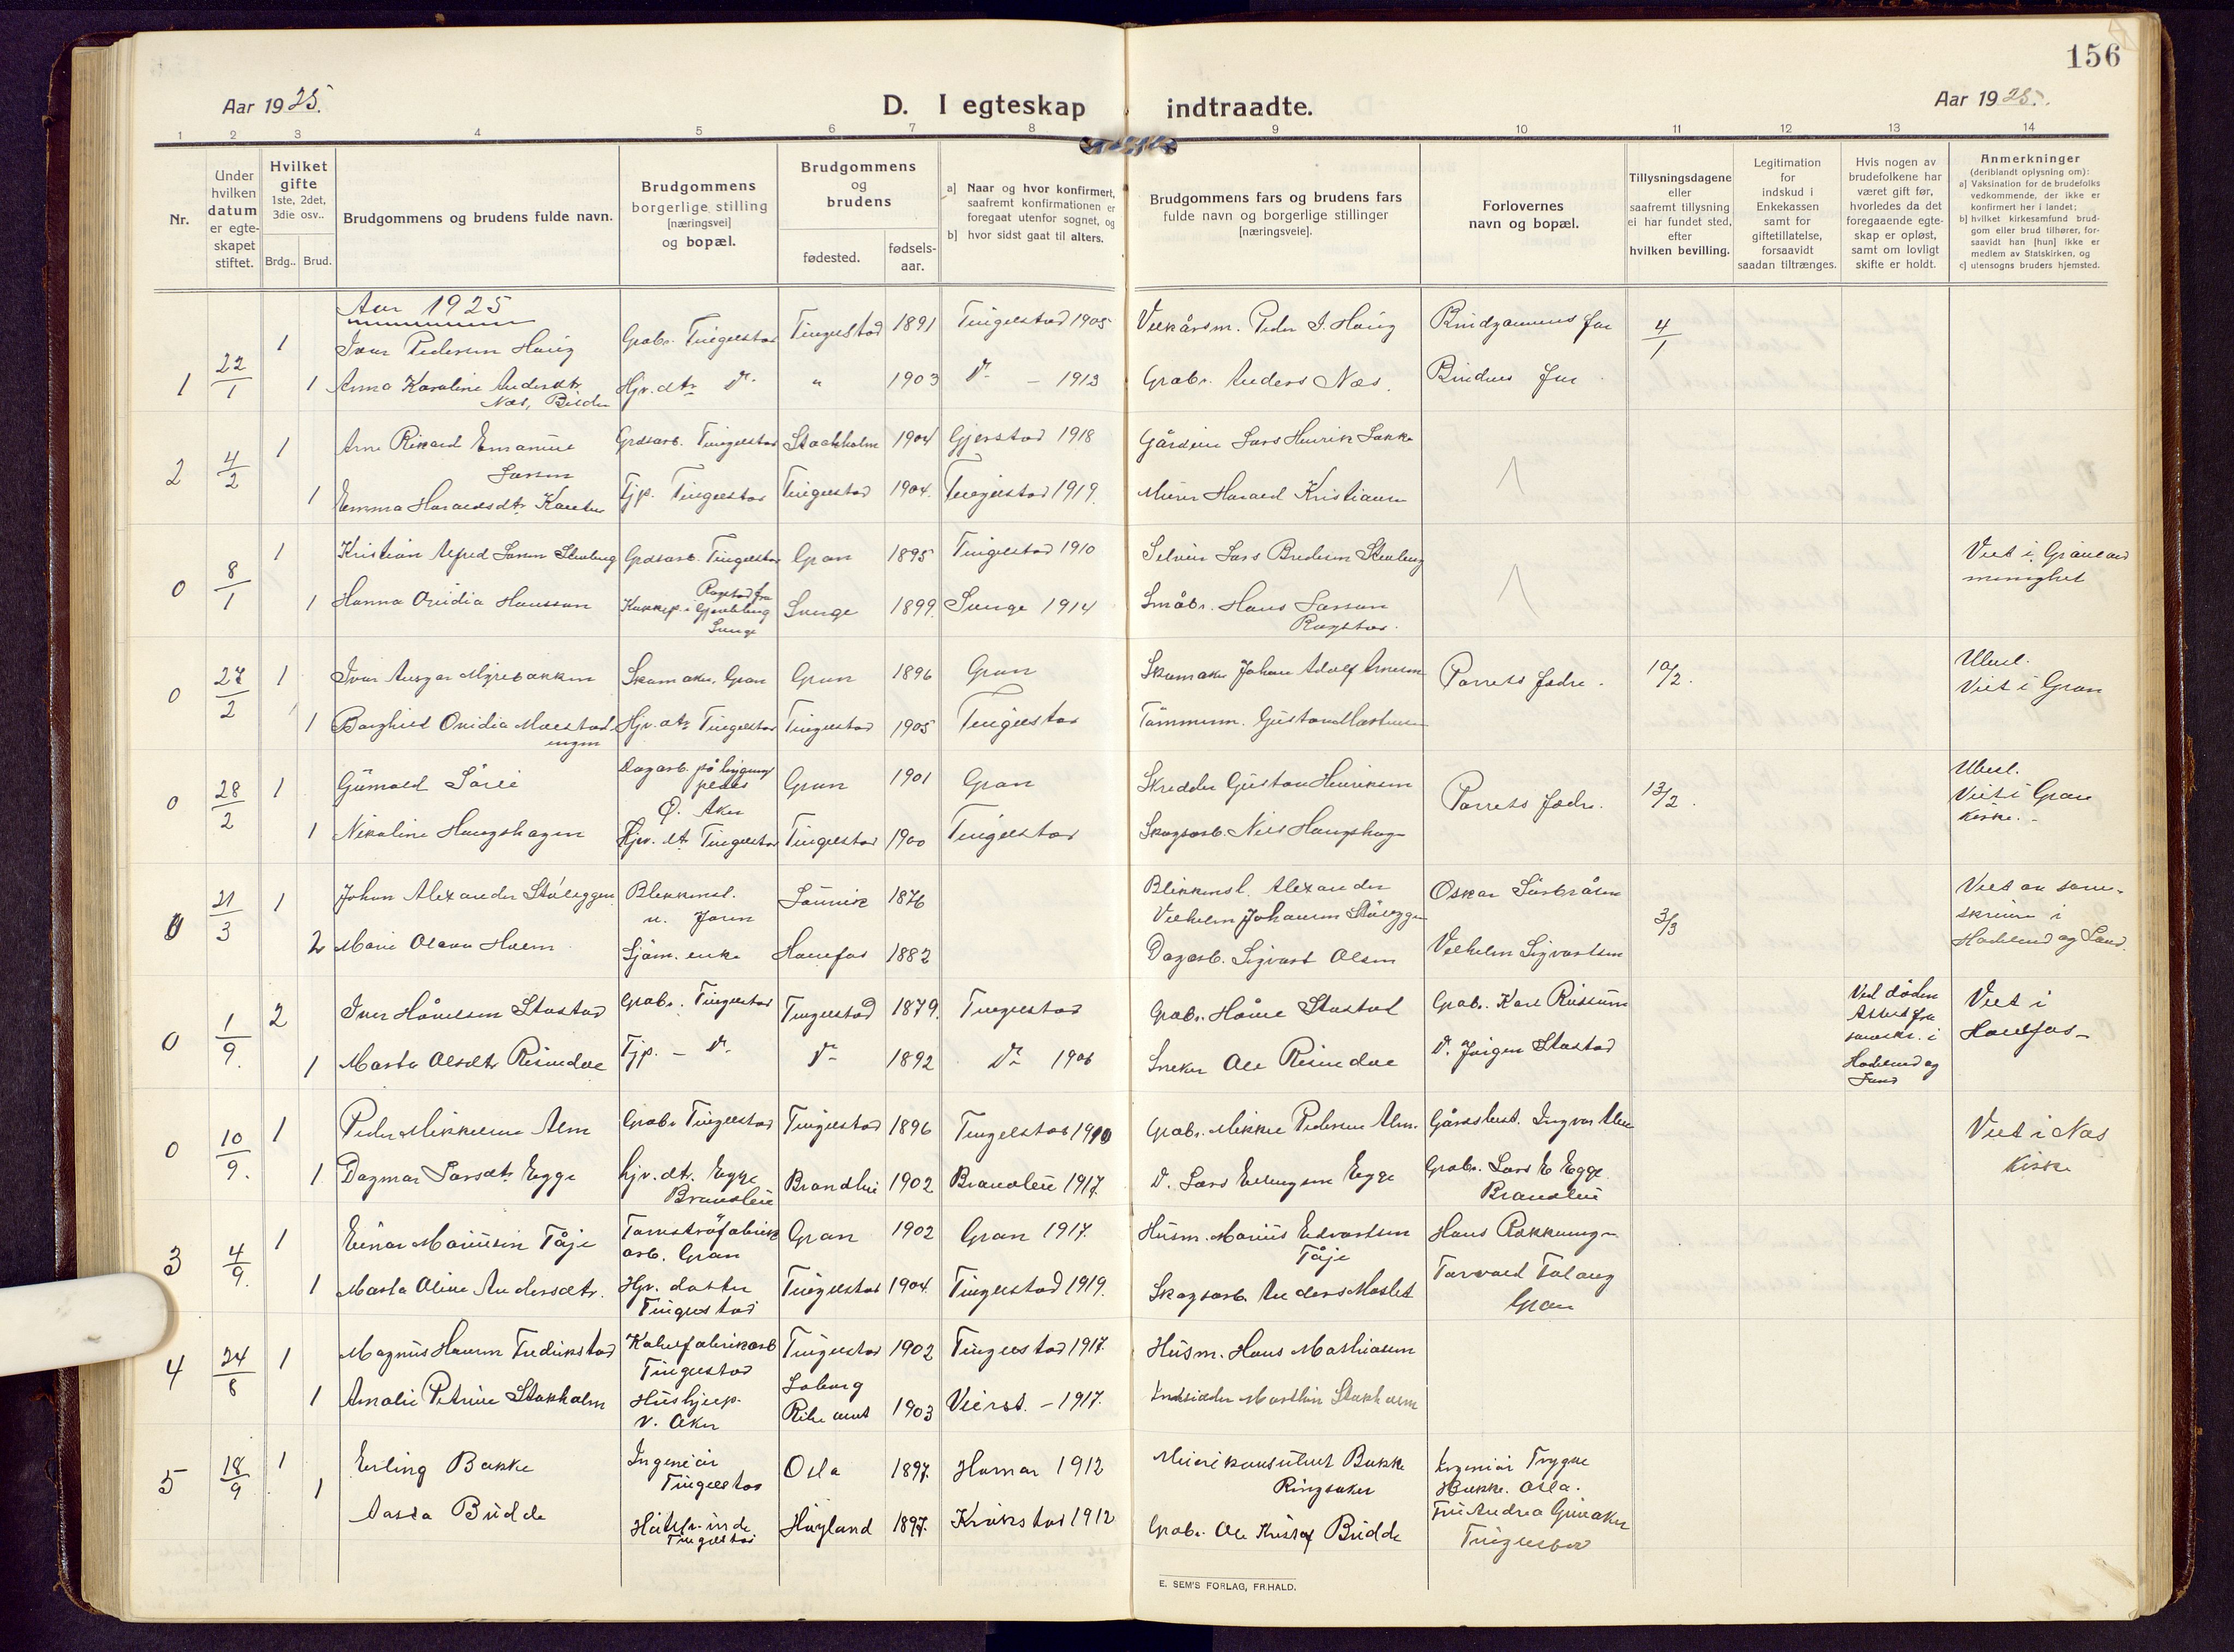 156
Aar 1925.
D. I egteskap indtraadte.
Aar 1925.
1 2 3 4 5 6 7 8 9 10 11 12 13 14
Nr.
Under hvilken datum er egte-skapet stiftet.
Hvilket gifte 1ste, 2det, 3die osv..
Brdg.. Brud.
Brudgommens og brudens fulde navn.
Brudgommens borgerlige stilling [næringsvei] og bopæl.
Brudgommens og brudens
fødested.
fødsels-aar.
a] Naar og hvor konfirmert, saafremt konfirmationen er foregaat utenfor sognet, og
b] hvor sidst gaat til alters.
Brudgommens fars og brudens fars
fulde navn og borgerlige stillinger
[næringsveie].
Forlovernes
navn og bopæl.
Tillysningsdagene
eller
saafremt tillysning
ei har fundet sted,
efter
hvilken bevilling.
Legitimation
for
indskud i
Enkekassen
samt for
giftetillatelse,
forsaavidt
saadan tiltrænges.
Hvis nogen av
brudefolkene har
været gift før,
hvorledes da det
foregaaende egte-
skap er opløst,
samt om lovligt
skifte er holdt.
Anmerkninger
(deriblandt oplysning om):
a] Vaksination for de brudefolks
vedkommende, der ikke er
konfirmert her i landet;
b] hvilket kirkesamfund brud-
gom eller brud tilhører, for-
saavidt han [hun] ikke er
medlem av Statskirken, og
c] utensogns bruders hjemsted.
Aar 1925
1 22/1 1 Ivar Pedersen Haug Grdbr. Tingelstad Tingelstad 1891 Tingelstad 1905 Peder I. Haug Brudgommens far 4/1
1 Anna Karoline Andersdtr. Næs, Hjv. dtr. Do " 1903 Do - 1913 Grdbr. Anders Næs. Brudens far
2 4/2 1 Arne Rikard Emanuel Larsen Grdsarb. Tingelstad Stockholm 1904 Gjerstad 1918 Lars Henrik
1 Emma Haraldsdtr. Tjp. Tingelstad Tingelstad 1904. Tingelstad 1919. Murer Harald Kristiansen
0 8/1 1 Kristian Alfred Larsen Stenberg Grdsarb. Tingelstad Gran 1895 Tingelstad 1910 Lars Stenberg Viet i
menighet
1 Hanna Ovidia Hanssen Lunge 1899. Lunge 1914 Småbr. Hans Larsen
Ragstad.
0 27/2 1 Ivar Ansgar Myrebakken Skomaker, Gran Gran 1896 Gran Skomaker Johan Adolf Arnesen Parrets fædre. 10/2. Utbesl.
Viet i Gran
1 Borghild Ovidia Hjv. dtr. Tingelstad Tingelstad 1905 Tingelstad Tømmerm. Gustav
0 28/2 1 Gunvald Sørli Dagarb. på
Ø. Aker Gran 1901 Gran Skredder Gustav Henriksen Parrets fædre. 13/2. Utbesl.
Viet i Gran
Kirke.
1 Nikoline Haugshagen Hjv. dt. Tingelstad Tingelstad 1900 Tingelstad Skogsarb. Nils Haugshagen
0 21/3 1 Johan Alexander Blikkensl. 1876 Blikkensl. Alexander
Vilhelm Johansen Oskar 3/3 Viet av soren-
skriver i
Hadeland og Land.
2 Marie Olava Holm Sjøm. enke Hønefos 1882 Dagarb. Sigvart Olsen Vilhelm Sigvartsen
0 1/9. 2 Iver Håvelsen Stastad Grdbr. Tingelstad Tingelstad 1879. Tingelstad Grdbr. Håvel Stastad Grdbr. Karl Rússum Ved døden
Attest fra
sorenskr. i
Hadeland og
Land Viet i
Hønefos
1 Marta Olsdtr. Risindal Tjp. - Do Do 1892 Do 1906 Sneker Ole Risindal D. Jørgen Stastad
0 10/9. 1 Peder Mikkelsen Alm Grdbr. Tingelstad Tingelstad 1896 Tingelstad 1910 Grdbr. Mikkel Pedersen Alm. Gårdbest. Ingvar Alm Viet i Næs
Kirke
1 Dagmar Larsdtr. Egge hjv. dtr. Egge
Brandbu Brandbu 1902 Brandbu 1917. D. Lars Erlingsen Egge Grdbr. Lars E Egge
Brandbu
3 4/9. 1 Einar Mariusen Tåje
arb. Gran Gran 1902 Gran 1917. Husm. Marius Edvartsen
Tåje Hans
1 Marta Oline Andersdtr. Hjv. datter
Tingelstad Tingelstad 1904 Tingelstad 1919. Skogsarb. Anders Torvald
Gran
4 24/8 1 Magnus Hansen Fredrikstad
Tingelstad Tingelstad 1902 Tingelstad 1917. Husm. Hans Mathiasen
1 Amalie Petrine Stokholm Hushjelp.
V. Aker Ribe amt 1903 - 1917. Indsidder Stokholm
5 18/9 1 Erling Bakke Ingeniør
Tingelstad Oslo 1897. Hamar 1912 Bakke
Ringsaker Ingeniør Trygve
Bakke. Oslo.
1 Aasta Budde
Tingelstad Høyland 1897. Kråkstad 1912 Grdbr. Ole Kristof Budde Fru Andrea Grinaker
Tingelstad
E. SEM'S FORLAG, FR.HALD.